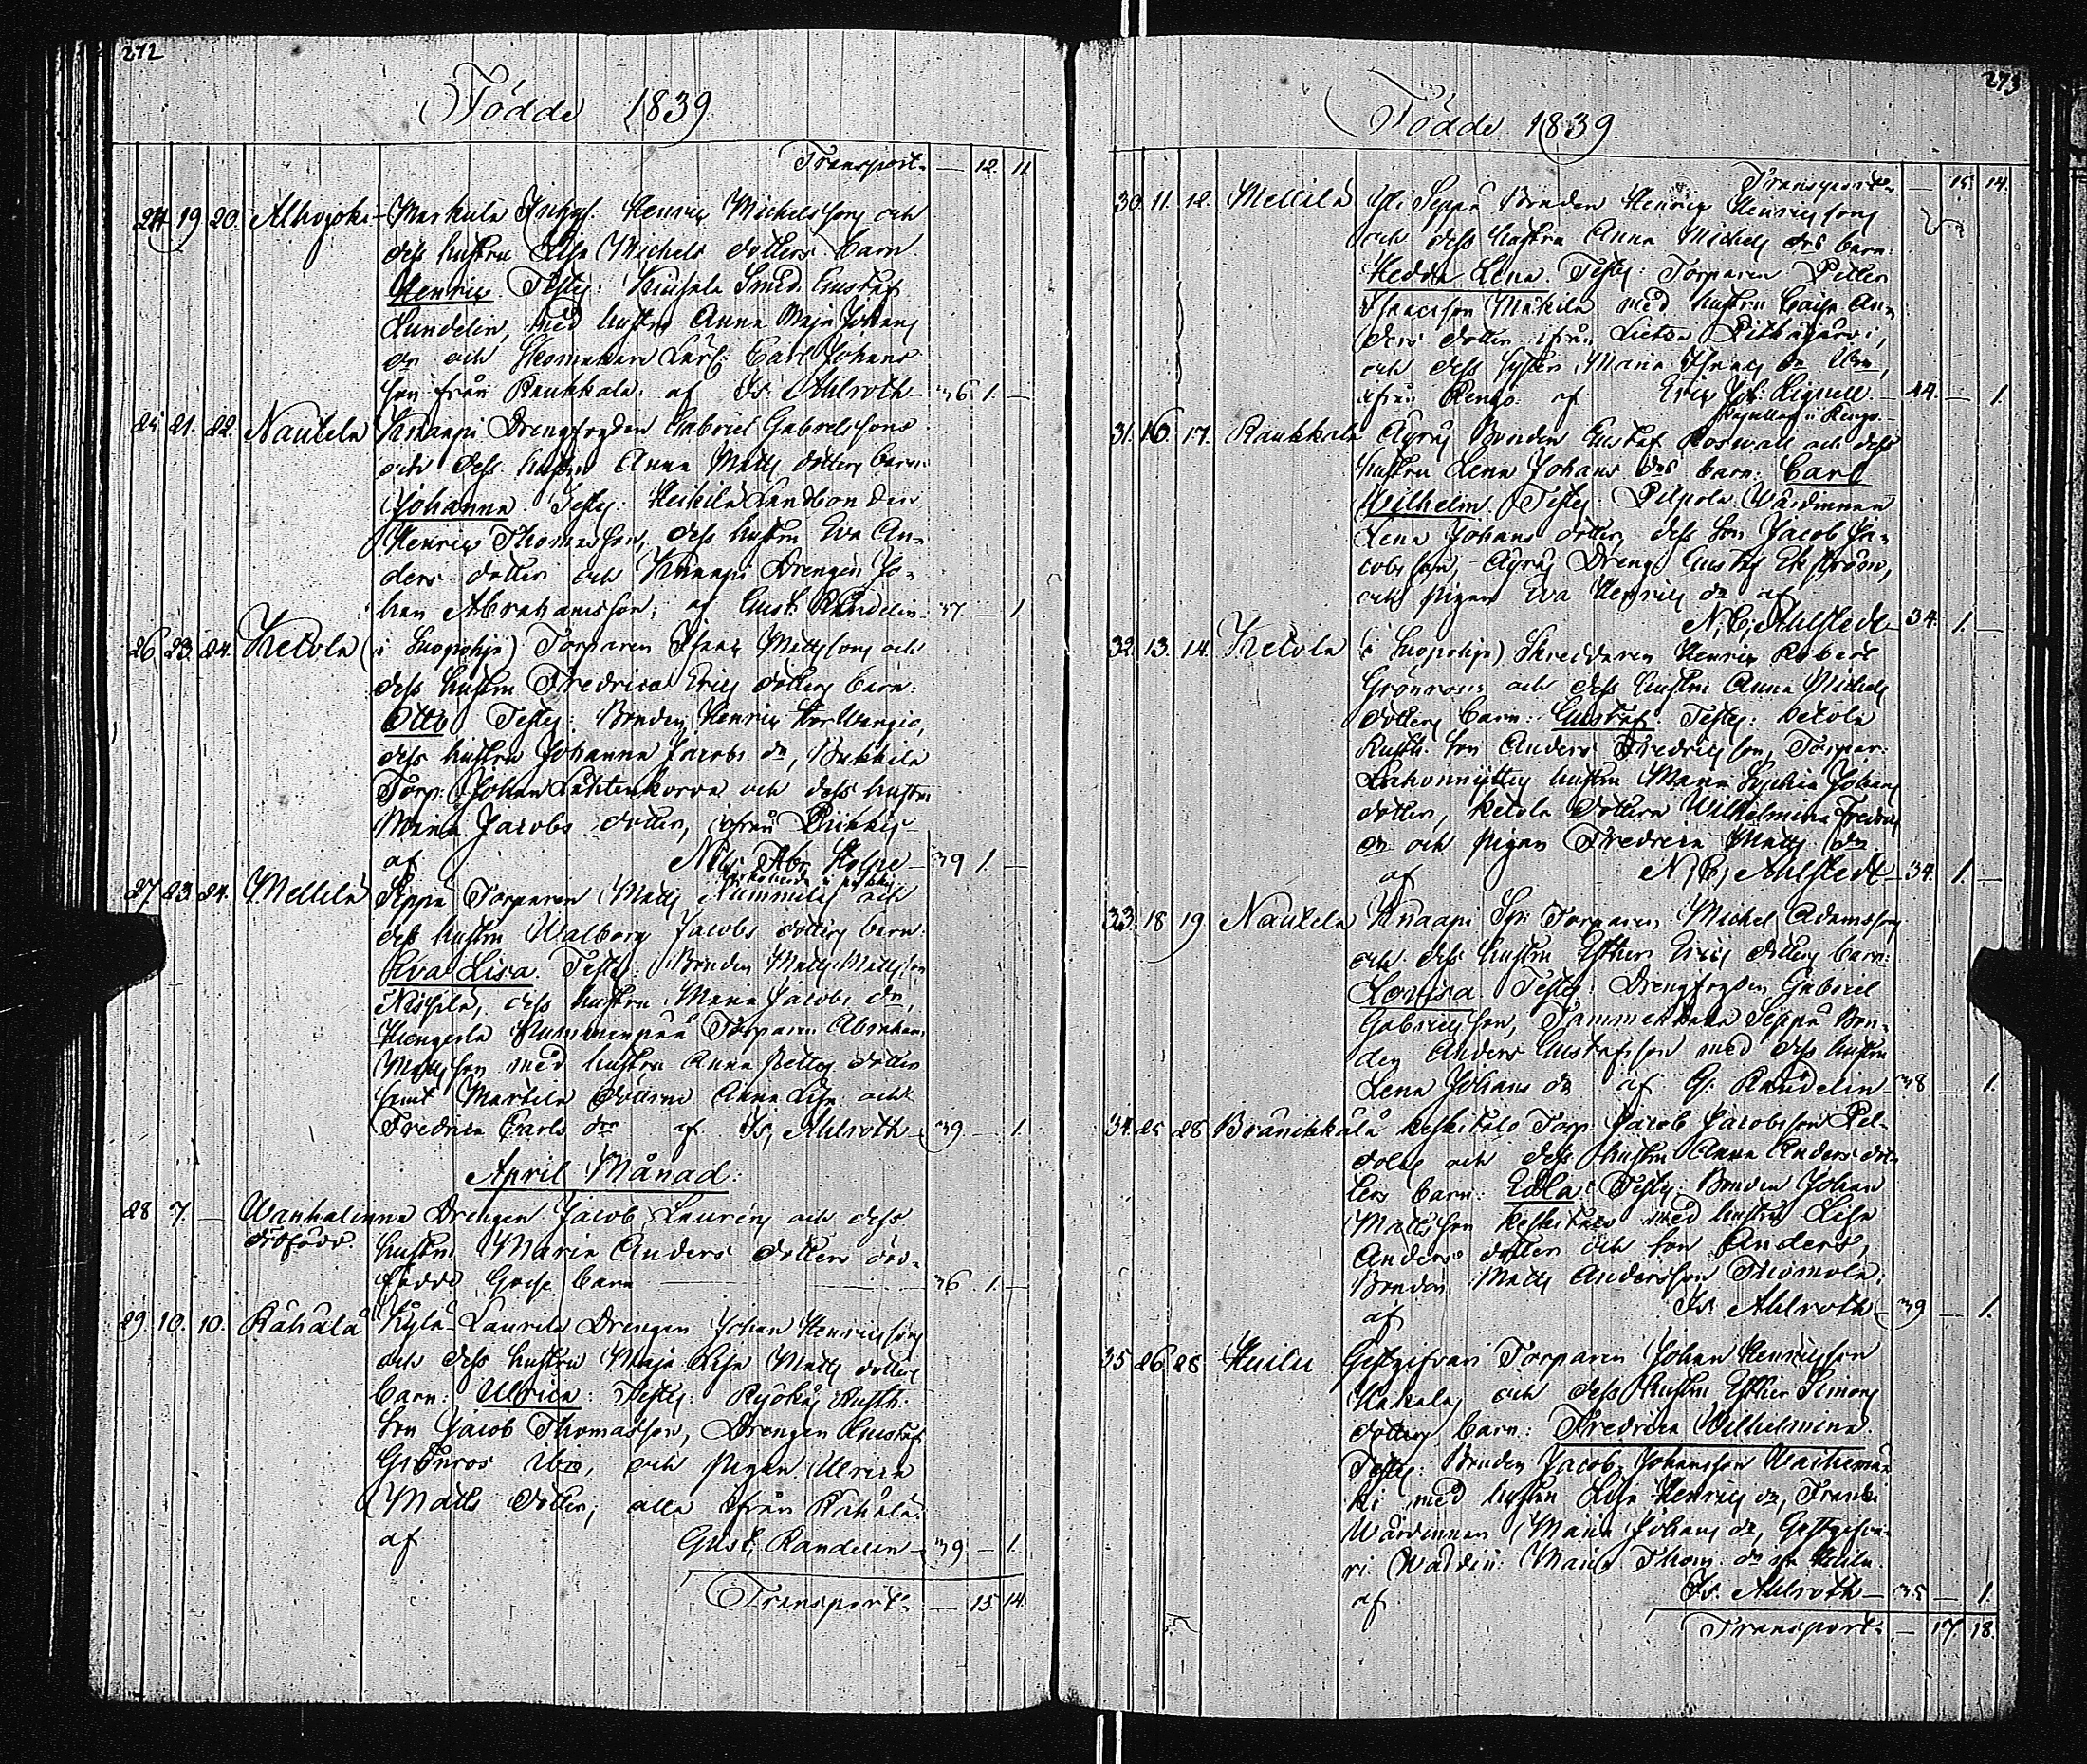 272
Födde 1839
Transport — 12. 11
24 19 20. Alhojoki Markula Henric Michelssons och
dess hustru Lisa Michels dotters barn
Henric Testes: Smed Gustaf
Lundelin, med hustru Anna Maja Johans
dr och Skomakare Carl Johans
son från Raukkala. af Is: Ahlroth — 36 1. —
25 21. 22. Nautela Knaapi Drengfogden Gabriel Gabrielssons
och dess hustru Anna Matts dotters barn
Johanna. Testes: Heikilä Landbonden
Henric Thomasson, dess hustru Eva An-
ders dotter och Knaapi Drengen Jo-
han Abrahamsson; af Gust. Randelin 37 — 1.
26 23. 24. Ketola (i Suopohja) Torparen Isaac Mattssons och
dess hustru Fredrica Erics dotters barn:
Otto Testes: Bonden Henric
dess hustru Johanna Jacobs dr,
Torp: Johan Lähtenkorva och dess hustru
Maria Jacobs dotter, ifrån
af Nils Abr. Stolpe — 39 1. —
27 23. 24. Mellilä Seppä Torparen Matts och
dess hustru Walborg Jacobs dotters barn
Eva Lisa. Testes: Bonden Matts Mattsson
dess hustru Maria Jacobs dr,
Torparen Abraham
Mattsson med hustru Anna dotter
samt Martila döttrar Anna Lisa och
Fredrica Carls drr af Is; Ahlroth — 39 — 1.
April Månad:
28 7. — Wanhalinna Drengen Jacob Laurens och dess
dödfödd. hustru Maria Anders dotters död-
födde Gosse barn — 36. 1. —
29. 10. 10. Rähälä Kylä-Laurila Drengen Johan Henricssons
och dess hustru Maja Lisa Matts dotters
barn: Ulrica: Testes: Rusth.
Son Jacob Thomasson, Drengen Gustaf
Grönros ibm, och pigan Ulrica
Matts dotter; alla ifrån Rähälä.
af Gust. Randelin — 39 — 1.
Transport — 15. 14.
273
Födde 1839
Transport — 15. 14.
30. 11. 12. Mellilä Yli Seppä Bonden Henric Henricssons
och dess hustru Anna Michels drs barn:
Hedda Lena Testes: Torparen Petter
Isaacsson Mäkilä med hustru Caisa An-
ders dotter ifrån
och dess syster Maria Isaacs dr ibm,
ifrån Rengo. af Eric Joh: Lignell — 44. — 1.
i Rengo.
31. 16. 17. Raukkala Äyräs Bonden Gustaf Roswall och dess
hustru Lena Johans drs barn: Carl
Wilhelm. Testes: Pilpola Wärdinnan
Lena Johans dotter, dess Son Jacob Ja-
cobsson, Äyräs Dreng Gustaf Ekström,
och pigan Eva Henrics dr af
N, C; Ahlstedt — 34. 1. —
32. 13. 14. Ketola (i Suopohja) Skreddaren Henric Robert
Grönroos och dess hustru Anna Michels
dotters barn: Gustaf. Testes: Ketola
Rusth. Son Anders Fredricsson, Torpar
hustru Maria Sophia Johans
dotter, Ketola dottern Wilhelmina Fredrics
dr och pigan Fredrica Matts dr
af N, C, Ahlstedt — 34. 1. —
33. 18 19. Nautela Knaapi Torparen Michel Adamssons
och dess hustru Esther Erics dotters barn:
Lovisa. Testes: Drengfogden Gabriel
Gabrielsson, Seppä Bon-
den Anders Gustafsson med dess hustru
Lena Johans dr af G: Randelin — 38 — 1.
34. 25 28 Bränikkälä Keskitalo Torp. Jacob Jacobsson
och dess hustru Anna Anders dot-
ters barn: Edla: Testes: Bonden Johan
Mattsson Keskitalo med hustru Lisa
Anders dotter och son Anders,
Bonden Matts Andersson
af Is: Ahlroth — 39 — 1.
35. 26. 28. Gestgifvars Torparen Johan Henricsson
Hakala, och dess hustru Esther Simons
dotters barn: Fredrica Wilhelmina.
Testes: Bonden Jacob Johansson
med hustru Lisa Henrics dr,
Wärdinnan Maria Johans dr, Gestgifva-
ri Wärdin: Maria Thom: dr
af Is. Ahlroth — 35 — 1.
Transport — 17. 18.